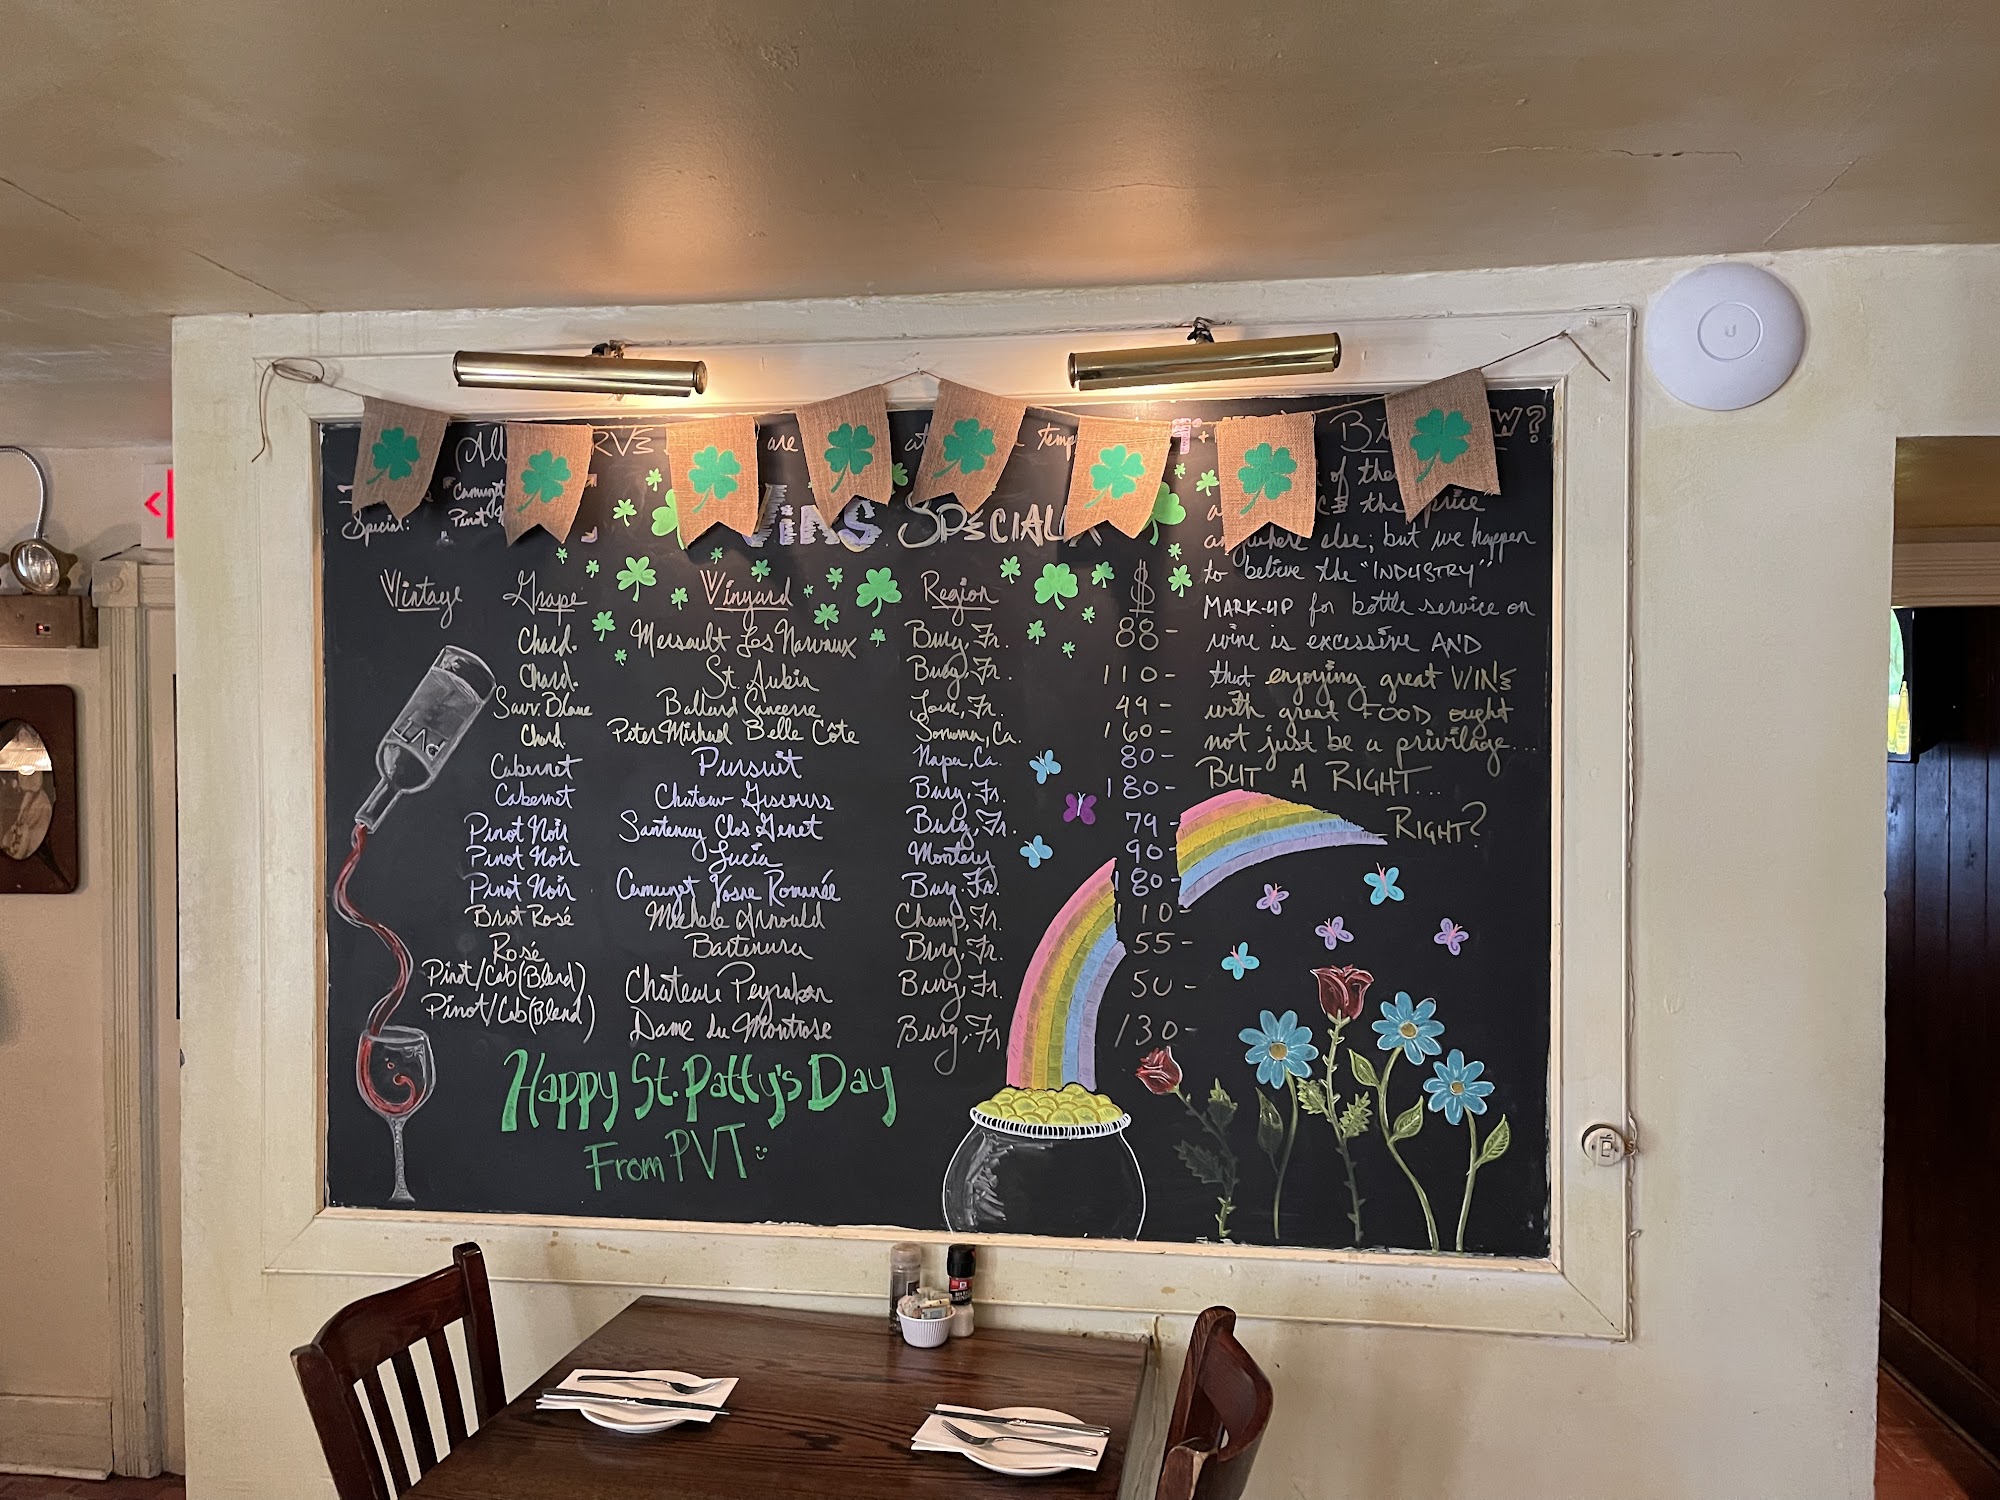 All are at temp
Special:
WINE SPECIALS
Vintage Grape Vinyard Region $
Chard. Mersault Les Narvaux Burg, Fr. 88-
Chard. St. Aubin Burg, Fr. 110-
Sauv. Blanc Ballard Sancerre Loire, Fr. 49-
Chard Peter Michael Belle Côte Sonoma, Ca. 160-
Cabernet Pursuit Napa, Ca. 80-
Cabernet Chateau Giscours Burg, Fr. 180-
Pinot Noir Santenay Clos Genet Burg, Fr. 79-
Pinot Noir Lucia Monterey 90-
Pinot Noir Camuzet Vosne Romanée Burg. Fr. 180-
Brut Rosé Michele Arnould Champ, Fr. 110-
Rosé Bartenura Burg, Fr. 55-
Pinot/Cab (Blend) Chateau Peyrabon Burg, Fr. 50-
Pinot/Cab (Blend) Dame du Montrose Burg, Fr 130-
PVT
Happy St. Patty's Day
From PVT
of the
the price
anywhere else; but we happen
to believe the "INDUSTRY"
MARK-UP for bottle service on
wine is excessive AND
that enjoying great WINE
with great FOOD ought
not just be a privilage...
BUT A RIGHT...
RIGHT?